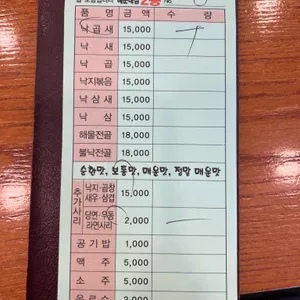 품 명 금 액 수 량
낙 곱 새 15,000
낙 새 15,000
낙 곱 15,000
낙지볶음 15,000
낙 삼 새 15,000
낙 삼 15,000
해물전골 18,000
불낙전골 18,000
순한맛, 보통맛, 매운맛, 정말 매운맛
추가사리
낙지·곱창
새우·삼겹 15,000
당면·우동
라면사리 2,000
공 기 밥 1,000
맥 주 5,000
소 주 5,000